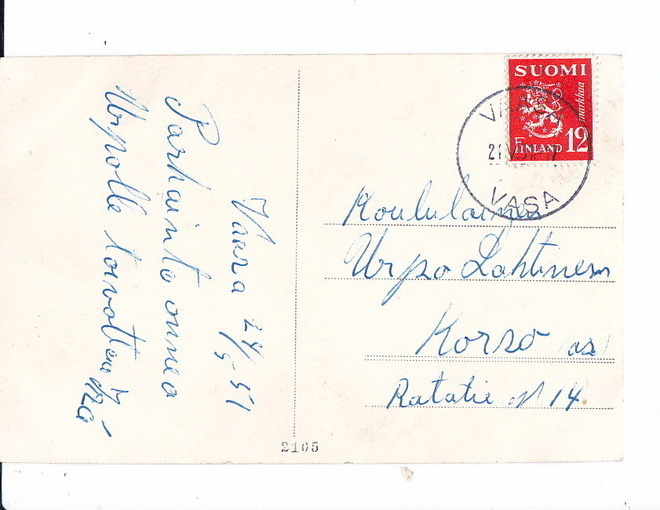 Vaasa 24/5 51
Parhainta onnea
Urpolle toivottaen
SUOMI
markkaa
FINLAND 12
VASA
Koululainen
Urpo Lahtinen
Korso (as)
Ratatie nº 14
2105